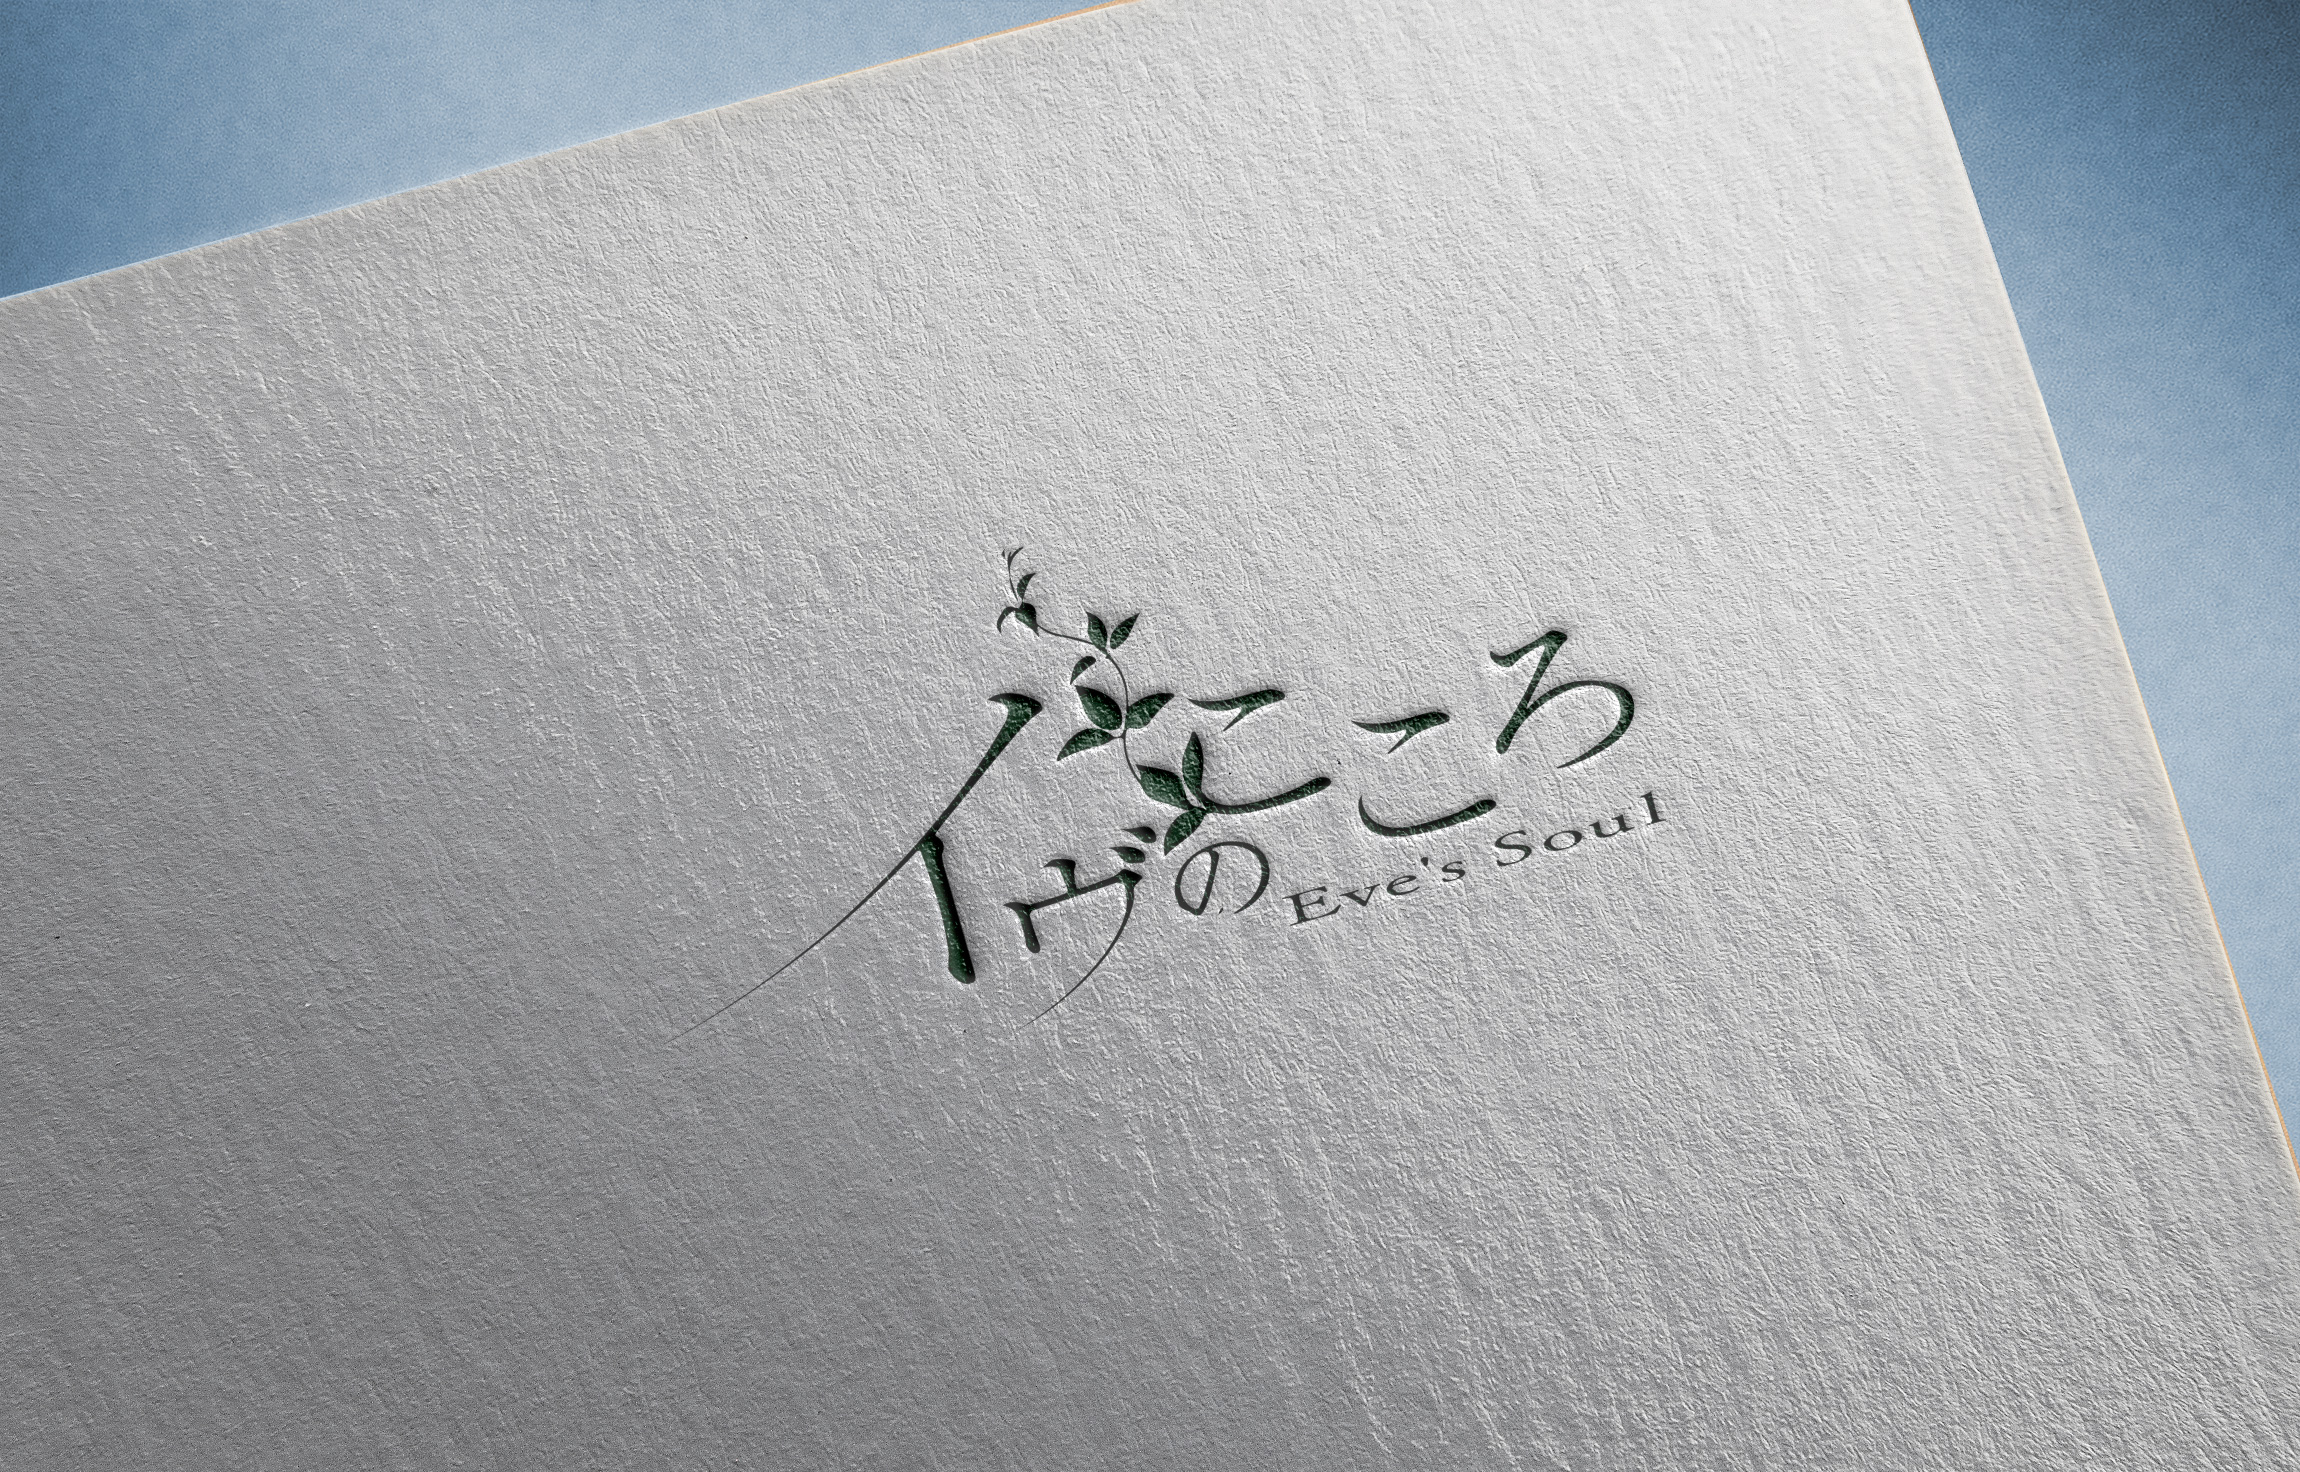 イヴのこころ
Eve's Soul